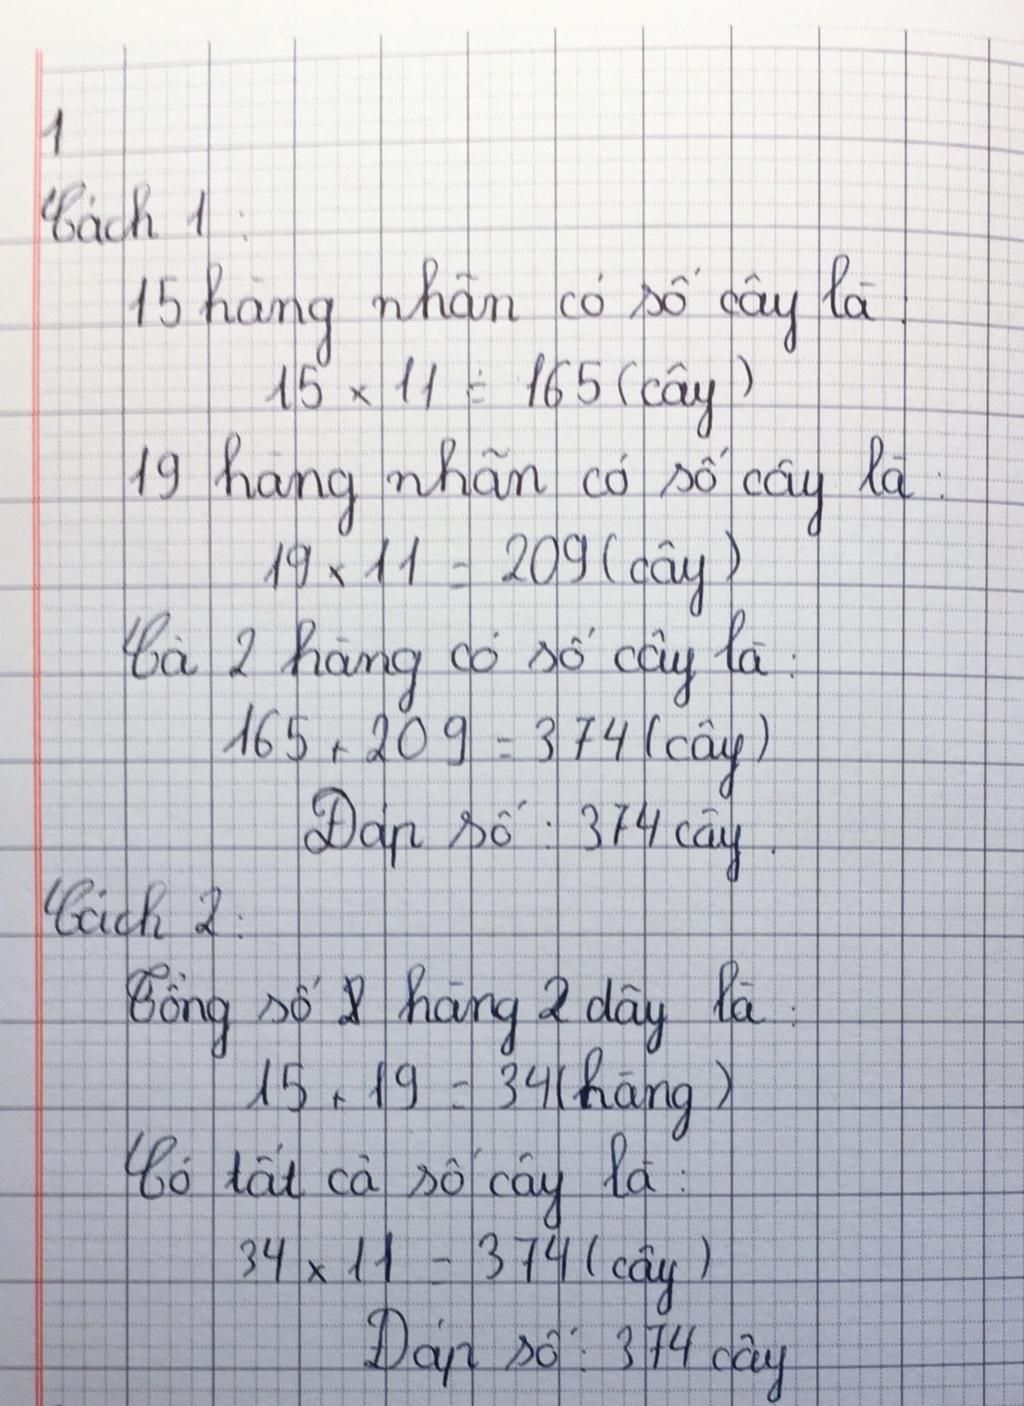 1
Cách 1:
15 hàng nhãn có số cây là:
15 x 11 = 165 (cây)
19 hàng nhãn có số cây là:
19 x 11 = 209 (cây)
Cả 2 hàng có số cây là:
165 + 209 = 374 (cây)
Đáp số: 374 cây.
Cách 2:
Tổng số hàng 2 dãy là:
15 + 19 = 34 (hàng)
Có tất cả số cây là:
34 x 11 = 374 (cây)
Đáp số: 374 cây